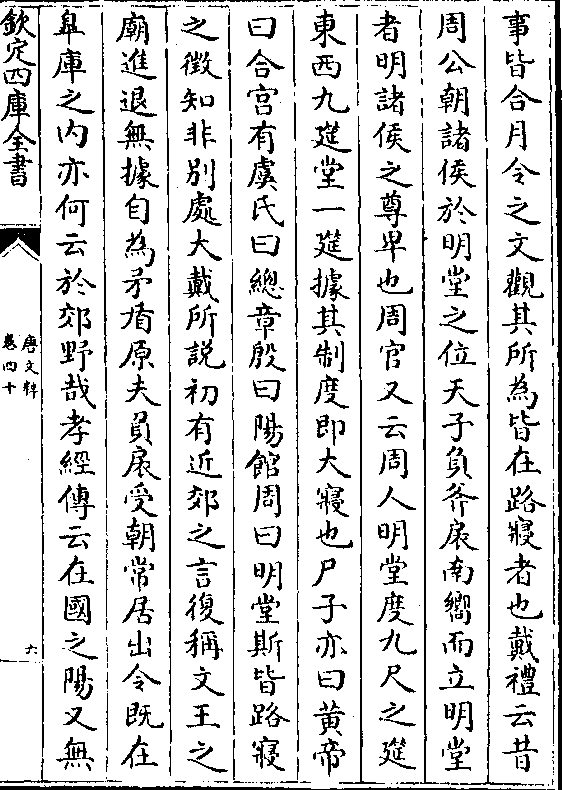 事皆合月令之文觀其所為皆在路寢者也戴禮云昔
周公朝諸侯於明堂之位天子負斧扆南嚮而立明堂
者明諸侯之尊卑也周官又云周人明堂度九尺之筵
東西九筵堂一筵據其制度即大寢也尸子亦曰黃帝
曰合宮有虞氏曰總章殷曰陽館周曰明堂斯皆路寢
之徴知非別處大戴所説初有近郊之言復稱文王之
廟進退無據自為矛盾原夫負扆受朝常居出令既在
臯庫之内亦何云於郊野哉孝經傳云在國之陽又無
欽定四庫全書
唐文粹
卷四十
六